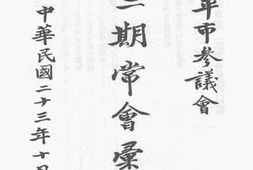 年市參議會
二期常會彙
中華民國二十三年十月